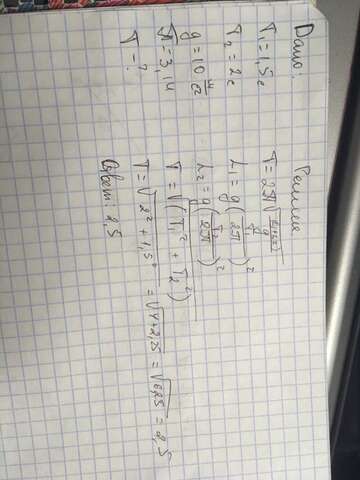 Дано:
T₁ = 1,5 с
T₂ = 2 с
g = 10 м/с²
π = 3,14
T - ?
Решение
T = 2π√((l₁+l₂)/g)
L₁ = g(T/2π)²
L₂ = g(T/2π)²
T = √(T₁² + T₂²)
T = √(2² + 1,5²) = √(4+2,25) = √6,25 = 2,5
Ответ: 2,5